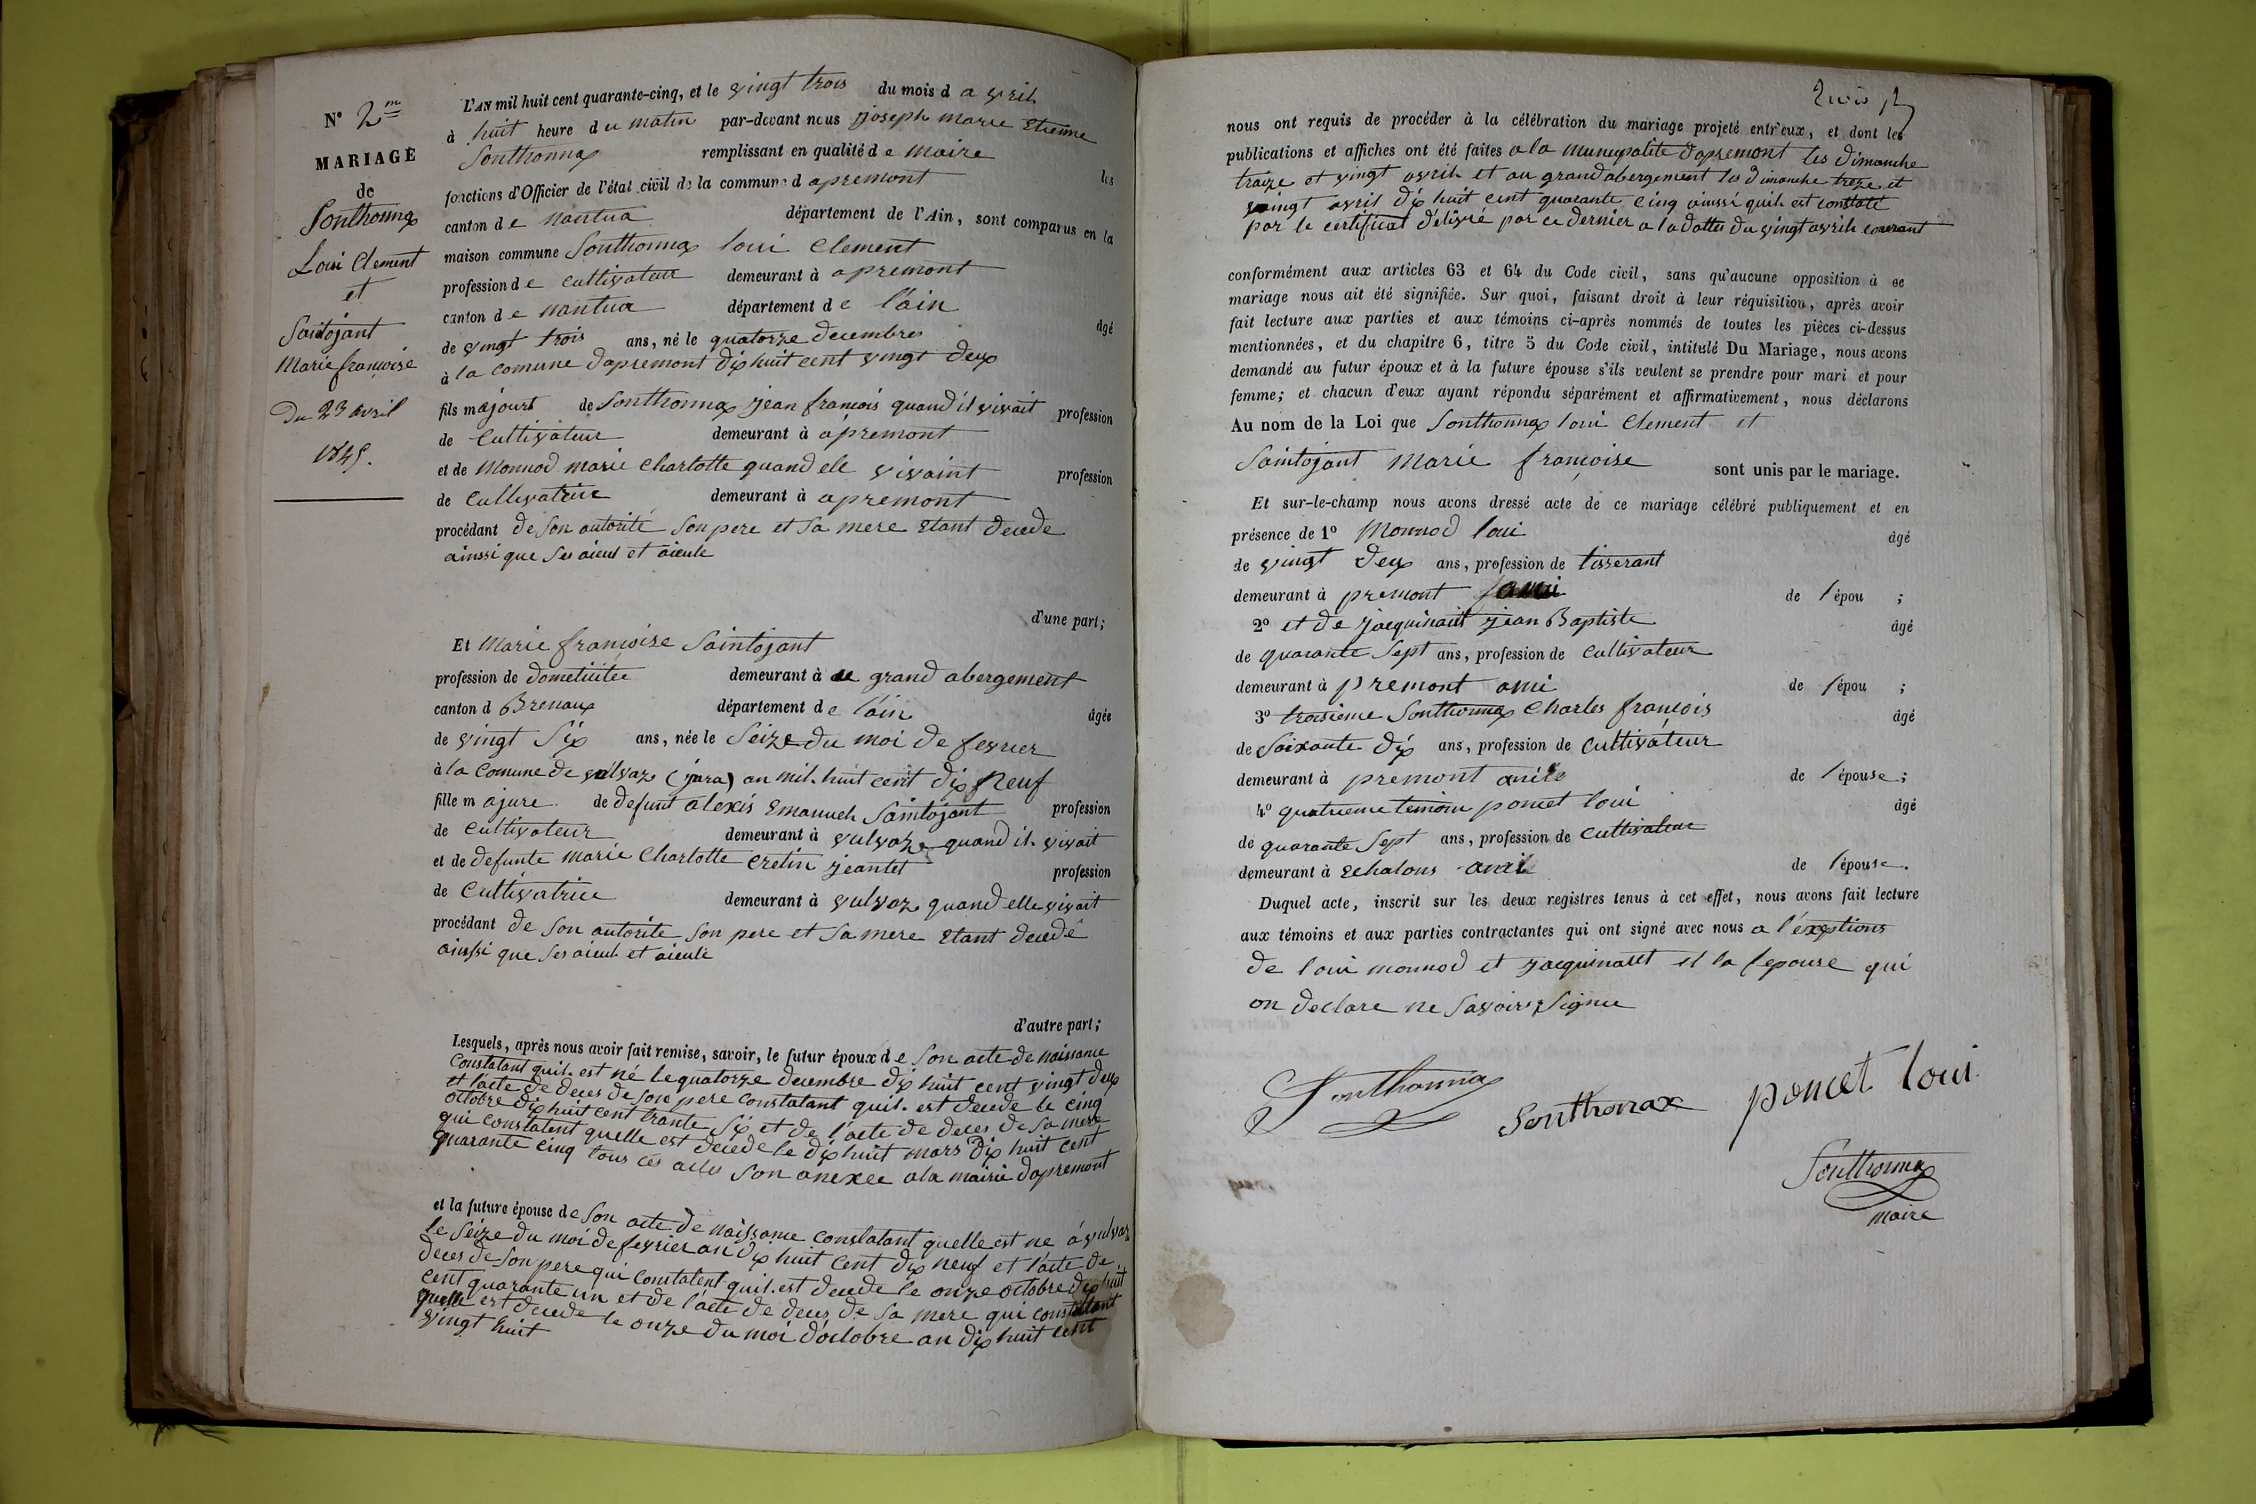 N° 2me
MARIAGE
de
Sonthonnax
Loui Clement
et
Saintojant
Marie françoise
Du 23 avril
1845.
L'AN mil huit cent quarante-cinq, et le vingt trois du mois d avril
à huit heure du matin par-devant nous joseph marie Etienne
Sonthonnax remplissant en qualité de maire les
fonctions d'Officier de l'état civil de la commune d apremont
canton de nantua département de l'Ain, sont comparus en la
maison commune Sonthonnax loui Clement
profession de cultivateur demeurant à apremont
canton de nantua département de l'ain âgé
de vingt trois ans, né le quatorze decembres
à la comune dapremont dix huit cent vingt deux
fils majourt de Sonthonnax jean francois quand il vivait profession
de cultivateur demeurant à apremont
et de Monnod marie Charlotte quand ele vivaint profession
de cultivatrice demeurant à apremont
procédant de son autorité son pere et sa mere Etant decede
ainssi que ses aieul et aieule
d'une part;
Et Marie francoise Saintojant
profession de dometicitée demeurant à grand abergement
canton d Brenaux département de l'ain âgée
de vingt Six ans, née le Seize du moi de fevrier
à la Comune de vulvoz (jura) an mil huit cent dix Neuf
fille majure de defunt alexis Emanueh Saintojant profession
de cultivateur demeurant à vulvoz quand il vivait
et de defunte marie Charlotte Cretin jeantet profession
de cultivatrice demeurant à vulvoz quand elle vivait
procédant de son autorite son pere et sa mere Etant decedé
ainssi que ses aieul et aieule
d'autre part;
Lesquels, après nous avoir fait remise, savoir, le futur époux de son acte de naissance
constatant quil est né le quatorze decembre dix huit cent vingt deux
et l'acte de deces de son pere constatant quil est decede le cinq
octobre dix huit cent trante Six et de l'acte de deces de sa mere
qui constatent quelle est decede le dix huit mars dix huit cent
quarante cinq tous ces actes son anexee a la mairie dapremont
et la future épouse de son acte de naissance constatant quelle est ne à vulvoz
le Seize du moi de fevrier an dix huit cent dix neuf et l'acte de
deces de son pere qui constatent quil est decede le onze octobre dix huit
cent quarante un et de l'acte de deces de sa mere qui constatant
quelle est decede le onze du moi d'octobre an dix huit cent
vingt huit
nous ont requis de procéder à la célébration du mariage projeté entr'eux, et dont les
publications et affiches ont été faites a la municipalite dapremont les dimanche
traize et vingt avrih et au grand abergement les dimanche treze et
vingt avril dix huit cent quarante cinq ainssi quil est constaté
par le certificat délivré par ce dernier a la datte du vingt avrih courant
conformément aux articles 63 et 64 du Code civil, sans qu'aucune opposition à ce
mariage nous ait été signifiée. Sur quoi, faisant droit à leur réquisition, après avoir
fait lecture aux parties et aux témoins ci-après nommés de toutes les pièces ci-dessus
mentionnées, et du chapitre 6, titre 5 du Code civil, intitulé Du Mariage, nous avons
demandé au futur époux et à la future épouse s'ils veulent se prendre pour mari et pour
femme; et chacun d'eux ayant répondu séparément et affirmativement, nous déclarons
Au nom de la Loi que Sonthonnax loui Clement et
Saintojant Marie francoise sont unis par le mariage.
Et sur-le-champ nous avons dressé acte de ce mariage célébré publiquement et en
présence de 1° Monnod loui âgé
de vingt deux ans, profession de tisserant
demeurant à premont ami de l'épou ;
2° et de jacquinant jean Baptiste âgé
de quarante Sept ans, profession de cultivateur
demeurant à premont ami de l'épou ;
3° troisieme Sonthonnax Charles francois âgé
de Soixante dix ans, profession de cultivateur
demeurant à premont de l'épouse;
4° quatrieme temoin poncet loui âgé
de quarante Sept ans, profession de cultivateur
demeurant à Echalons ami de l'épouse.
Duquel acte, inscrit sur les deux registres tenus à cet effet, nous avons fait lecture
aux témoins et aux parties contractantes qui ont signé avec nous a l'exeptions
de loui monnod et jacquinant et la lepouse qui
on declare ne savoir signer
Sonthonnax
Sonthonax
poncet loui
Sonthonnax
maire